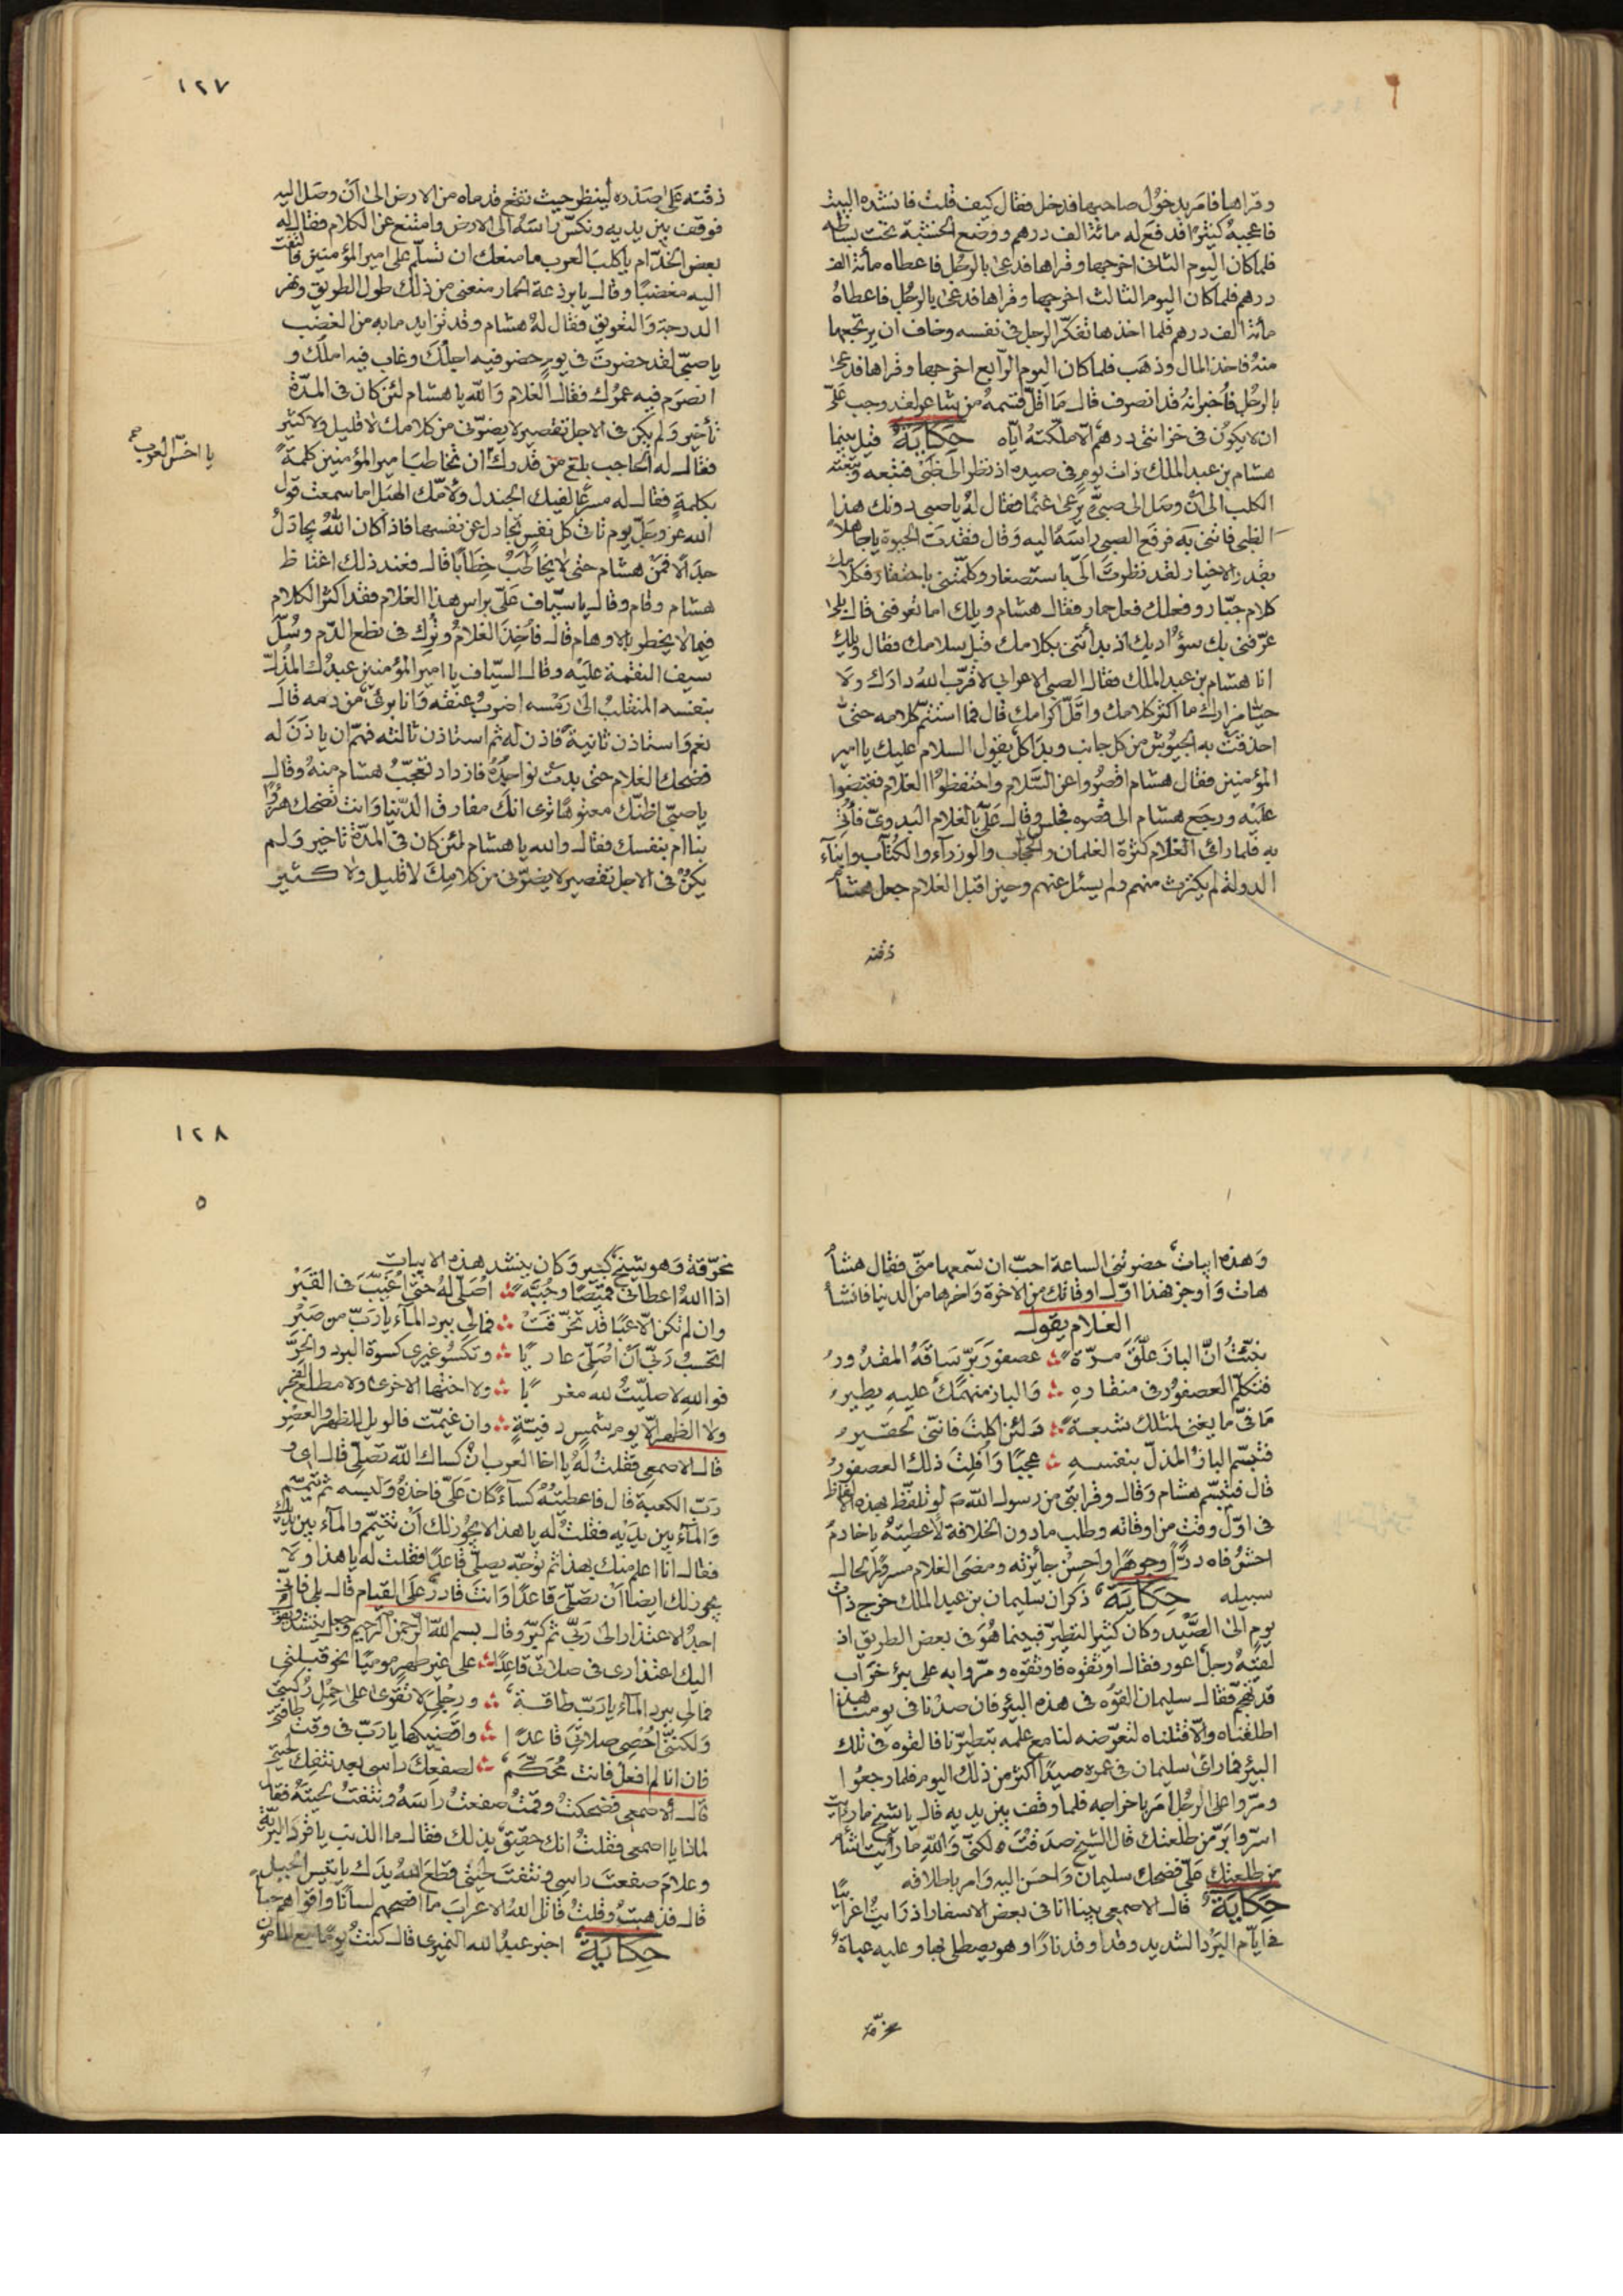 وقراها فامر بدخول صاحبها فدخل فقال كيف قلت فانشده البيت
فاعجبه كثيرًا فدفع له مائة الف درهم ووضع الخشبة تحت بساطه
فلما كان اليوم الثانى اخرجها وقراها فدعى بالرجل فاعطاه مأئة الف
درهم فلما كان اليوم الثالث اخرجها وقراها فدعى بالرجل فاعطاهُ
مأئة الف درهم فلما اخذها تفكر الرجل فى نفسه وخاف ان يرتجعها
منهُ فاخذ المال وذهب فلما كان اليوم الرّابع اخرجها وقراها فدعى
بالرجُل فأُخبر انهُ قد انصرف قال مَا اقلّ قسمهُ من شاعر لقد وجب عَلىّ
ان لا يكون فى خزانتى درهم الّا ملكته ايّاه حكايَة قيل بينما
هشام بن عبد الملك ذات يومٍ فى صيده اذ نظر الى ظبى فتبعه وتبعته
الكلب الى ان وصَل الى صبىّ يرعى غنمًا فقال لهُ يا صبى دونك هذا
الظبى فاتنى به فرفع الصبى راسَهُ اليه وقال فقدت الحيوة يا جاهلاً
بقدر الاخيار لقد نظرتَ الىّ باستصغار وكلمتنى باحتقار فكلامك
كلام جبّار وفعلك فعل حمار فقال هشام ويلك اما تعرفنى قال بلى
عرّفنى بك سوُء ادبك اذ بدأتنى بكلامك قبل سلامك فقال ويلك
انا هشام بن عبد الملك فقال الصبى الاعرابى لا قرّب الله دارك ولا
حيّا مزارك ما اكثر كلامك واقلّ اكرامك قال فما استتمّ كلامه حتى
احدقت به الجيوُش من كل جانب وبدا كل يقول السلام عليك يا امير
المؤمنين فقال هشام اقصرُوا عن السّلام واحتفظوا الغلام فقبضوا
عليه ورجع هشام الى قصره فجلس وقال علىّ بالغلام البدوىّ فأُتى
به فلما رائ الغلام كثرة الغلمان والحجّاب والوزراء والكتّاب وابنآء
الدولة لم يكترث منهم ولم يسئل عنهم وحين اقبل الغلام جعل هشام
ذقنه
١٢٧
ذقنه على صَدره لينظر حيث تقع قدماه من الارض الى ان وصَل اليه
فوقف بين يديه ونكّس راسَهُ الى الارض وامتنع عن الكلام فقال له
بعض الخدّام يا كلبَ العرب ما منعك ان تسلّم على امير المؤمنين فالتفت
اليه مغضبًا وقال يا برذعة الحمار منعنى من ذلك طول الطريق ونهز
الدرجة والتعويق فقال لهُ هشام وقد تزايد ما به من الغضب
يا صبىّ لقد حضرتَ فى يوم حضر فيه اجلك وغاب فيه املك و
انصرَم فيه عمرُك فقال الغلام وَاللّه يا هشام لئن كان فى المدّة
تأخير ولم يكن فى الاجل تقصير لا يضرّنى من كلامك لا قليل ولا كثير
يا اخسّ العرب صح
فقال له الحاجب بلغ من قدرك ان تخاطبَ امير المؤمنين كلمةً
بكلمةٍ فقال له مسرعًا لفيك الجندل ولامّك الهبل اما سمعت قول
الله عز وجلّ يوم تاتى كل نفس تجادل عن نفسها فاذا كان اللهُ يجادَلُ
جدالا فمَن هشام حتى لا يخاطَب خِطَابًا قال فعند ذلك اغتاظ
هشام وقام وقال يا سيّاف علىّ براس هذا الغلام فقد اكثر الكلام
فيما لا يخطر بالاوهام قال فأخذ الغلامُ وبُرك فى نطع الدّم وسُلّ
سيف النقمة عليه وقال السيّاف يا امير المؤمنين عبدُك المُذِلّ
بنفسه المنقلبُ الى رَمْسه اضربُ عنقه وانا برىٌ من دمه قال
نعم واستاذن ثانيةً فاذن له ثم استاذن ثالثه فهمّ ان ياذنَ له
فضحك الغلام حتى بدت نواجذُهُ فازداد تعجّبُ هشام منهُ وقال
يا صبىّ اظنّك معتوهًا ترى انك مفارق الدّنيا وانت تضحك هزُؤًا
بنا ام بنفسك فقال والله يا هشام لئن كان فى المدّة تاخير ولم
يكنْ فى الاجل تقصير لا يضرّنى من كلامِكَ لا قليل ولا كثير
وَهذه ابيات حضرتنى الساعة احبّ ان تسمعها منّى فقال هشام
هات وَاوجز فهذا اوّل اوقاتك من الاخرة وَاخرها من الدنيا فانشأ
الغلام يقول
نبئتُ انّ البازَ علّق مرّة عصفورَ برّ سَاقهُ المقدُورُ
فتكلّم العصفورُ فى منقارهِ وَالباز منهمكٌ عليهِ يطيرُ
مَا فىّ ما يغنى لمثلك شبعةً وَلئن اكلتَ فانّنى لحقيرُ
فتبسّم البازُ المذلّ بنفسهِ عجبًا وَاُفلِتَ ذلك العصفورُ
قال فتبسّم هشام وَقال وقرابتى من رسول اللّه ص لو تلفّظ بهذه الالفاظ
فى اوّل وقتٍ من اوقاته وطلب ما دون الخلافة لأعطيتهُ يا خادم
احشُ فاه درًّا وجوهرًا واحسن جائزته ومضى الغلام مسرورًا لحال
سبيله حكايَة ذكر ان سليمان بن عبد الملك خرج ذات
يومٍ الى الصَّيد وكان كثير التطيّر فبينما هُوَ فى بعض الطريق اذ
لقيَهُ رجلٌ اعور فقال اوثقوه فاوثقوه ومرّوا به على بئر خرَاب
قد تهجّم فقال سليمان القوُه فى هذه البئر فان صدْنا فى يومنا هذا
اطلقناه والّا قتلناه لتعرّضه لنا مع علمه بتطيّرنا فالقوه فى تلك
البئر فما رائ سليمان فى عمره صيدًا اكثر من ذلك اليوم فلما رجعوا
ومرّوا على الرجُل امر باخراجه فلما وقف بين يديه قال يا شيخ ما رايت
اسرّ وابرّ من طلعتك قال الشيخ صَدقتَ ولكنى وَاللّهِ ما رأيت اشأم
من طلعتك علىّ فضحك سليمان واحسَن اليه وامر باطلاقه
حكايَة قال الاصمعى بينا انا فى بعض الاسفار اذ رَايتُ اعرابيًّا
فى ايّام البرد الشديد وقد اوقد نارًا وهو يصطلى بها وعليه عباة
مخرّقة
١٢٨
٥
مخرّقة وَهو شيخٌ كبير وَكان ينشد هذه الابيات
اذا اللهُ اعطانى قميصًا وجُبّة اصَلّى لهُ حتى اُغيّبَ فى القبَرْ
وان لم تكن الّا عبًا قد تخرّقتْ فمالى ببرد المآء يا رَبّ من صَبَرْ
اتحسبُ ربّى انْ اصَلّى عاريًا وتكسُو غيرى كسوة البرد والحرّ
فو اللهِ لا صليّتُ لله مغربًا ولا اختها الاخرى ولا مطلع الفجر
ولا الظهر الّا يومَ شمسٍ دفيّةٍ وان غيّمت فالويل للظهر والعَصْر
قال الاصمعى فقلتُ لهُ يا اخا العرب ان كساك اللّه تصلّى قال اى و
رَبّ الكعبة قال فاعطيتُهُ كسآءً كان علىّ فاخذهُ ولبسه ثم تيمّم
وَالمآءُ بين يديه فقلتُ له يا هذا لا يجوز لك ان تتيمّم والمآء بين يديك
فقال انا اعلم منك بهذا ثم توجّه يصلّى قاعدًا فقلت له يا هذا ولا
يجوز لك ايضا ان تصَلّىَ قاعدًا وَانت قادرٌ على القيام قال بلى فانّى
احدُ الاعتذار الى ربّى ثم كبّر وقال بسم اللّه الرّحمن الرّحيم وجعل ينشد وهو
اليك اعتذارى فى صلاتى قاعدًا على غير طهرٍ موميًا نحو قبلتى
فمالى ببرد المآء يا ربّ طاقة ورجلى لا تقوى على حمل ركبتى
وَلكننى اُحصِى صلاتى قاعدًا واقضيكها يا رَبّ فى وقت طاقتى
فان انا لم افعل فانت مُحَكّم لصفعك راسى بعد نتفك لحيتى
قال الاصمعى فضحكتُ وقمتُ صفعتُ رَاسَهُ ونتفتُ لحيتهُ فقال
لماذا يا اصمعى فقلتُ انك حقيق بذلك فقال ما الذنب يا قرد البريّة
وعلامَ صفعتَ راسِى ونتفتَ لحيتى قطعَ اللهُ يدَك يا تيس الجبل
قال فذهبتُ وقلتُ قاتل اللهُ الاعرابَ ما افصحهم لسانًا واقواهم جوابًا
حكايَة اخبر عبدُ الله النميرى قال كنتُ يومًا مع المامون